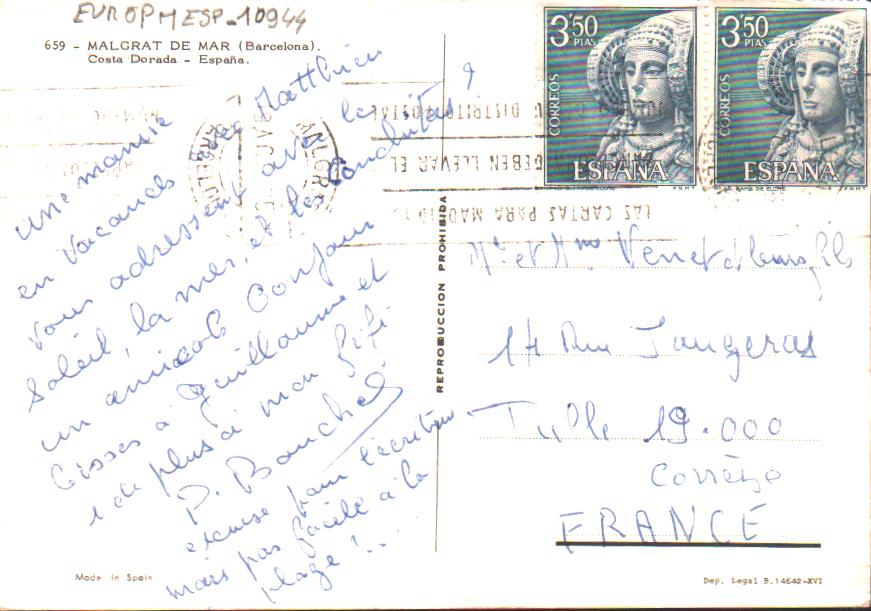 EUROPMESP-10944
659 - MALGRAT DE MAR (Barcelona).
Costa Dorada - España.
une mamie
en vacances avec Matthieu
vous adressent avec le
soleil, la mer, et les "conchitas"
un amical bonjour
bisses à Guillaume et
1 de plus à mon fifi
P. Bouchet
excuse pour l'écriture
mais pas facile à la
plage !...
Made in Spain
REPRODUCCION PROHIBIDA
3'50 PTAS
CORREOS
ESPAÑA
3'50 PTAS
CORREOS
ESPAÑA
LAS CARTAS PARA MADRID
DEBEN LLEVAR EL
DISTRITO POSTAL
MALGRAT
Mr et Mme Venet et leurs fils
14 Rue
Tulle 19.000
Corrèze
FRANCE
Dep. Legal B.14642-XVI